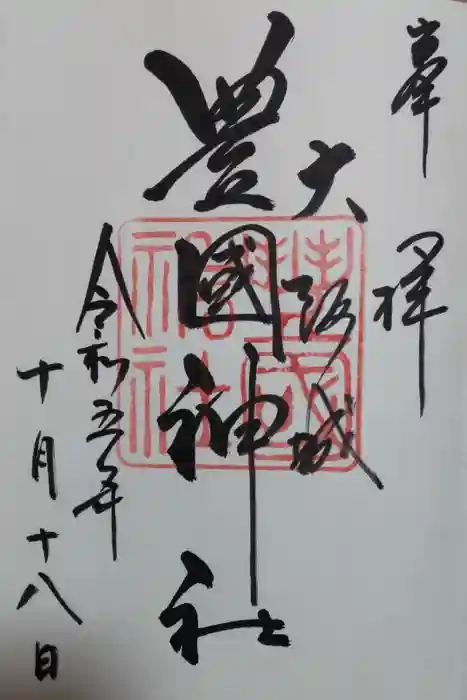 奉拝
大阪城
豊國神社
令和五年
十月十八日
豊國神社